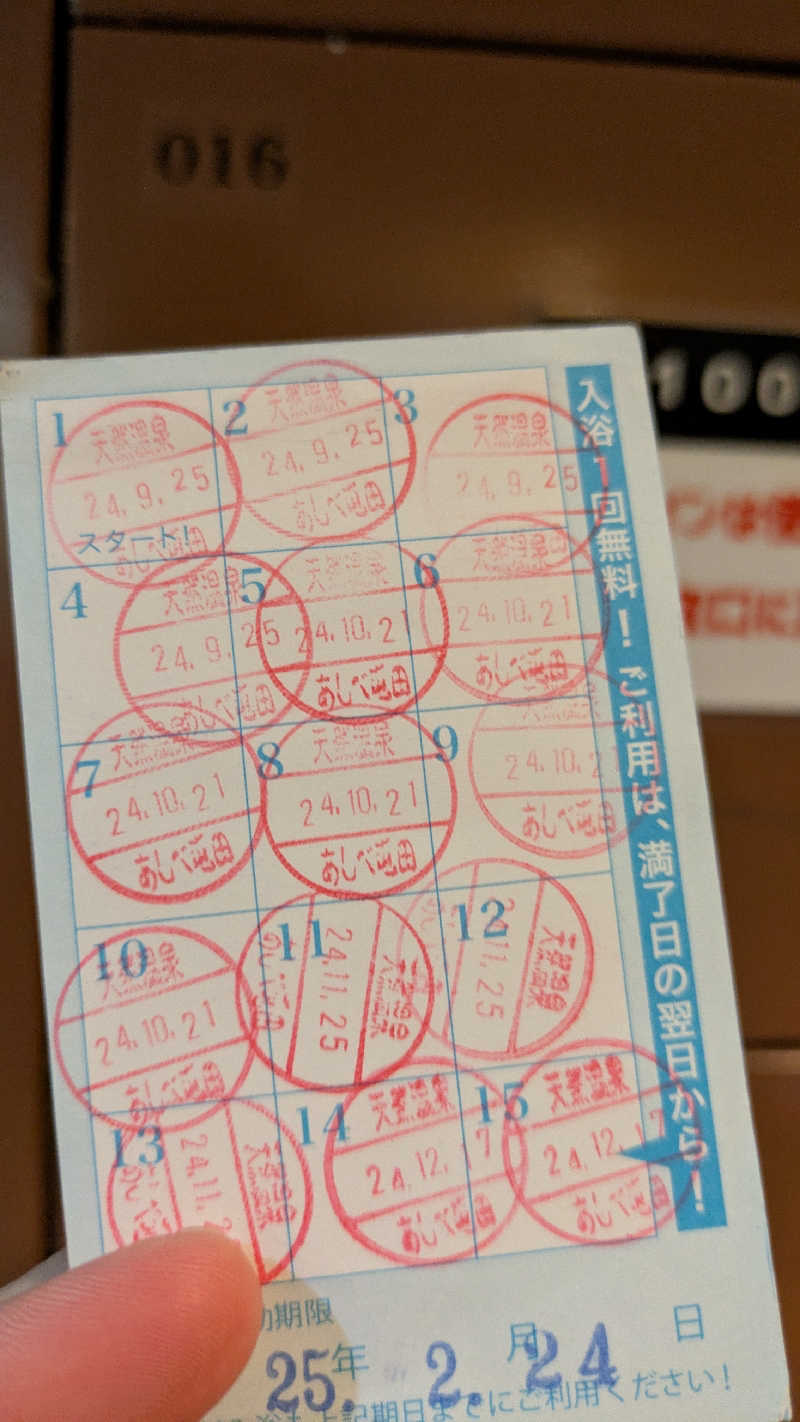 016
100
入浴1回無料！ご利用は、満了日の翌日から！
1
天然温泉
24.9.25
スタート！
2
天然温泉
24.9.25
あしべ
3
天然温泉
24.9.25
4
天然温泉
24.9.25
あしべ
5
天然温泉
24.10.21
あしべ
6
天然温泉
24.10.21
あしべ
7
天然温泉
24.10.21
あしべ
8
天然温泉
24.10.21
あしべ
9
天然温泉
24.10.2
あしべ
10
天然温泉
24.10.21
あしべ
11
天然温泉
24.11.25
12
天然温泉
11.25
13
天然温泉
24.11.2
14
天然温泉
24.12.17
あしべ
15
天然温泉
24.12.17
あしべ
期限
25年 2.月24日
上記期日までにご利用ください！